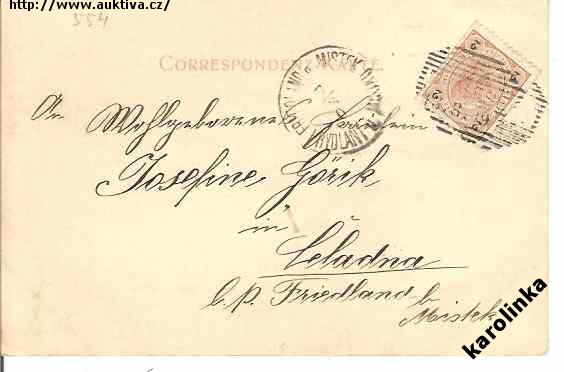 http://www.auktiva.cz/
554
CORRESPONDENZ-KARTE
An Wohlgeborene Fräulein
Josefine Görik
in
Čeladna
b. p. Friedland b
Mistek
karolinka